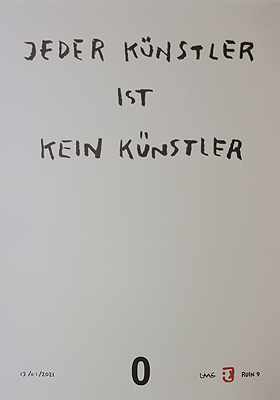 JEDER KÜNSTLER
IST
KEIN KÜNSTLER
13/01/2021
0
RUIN 9